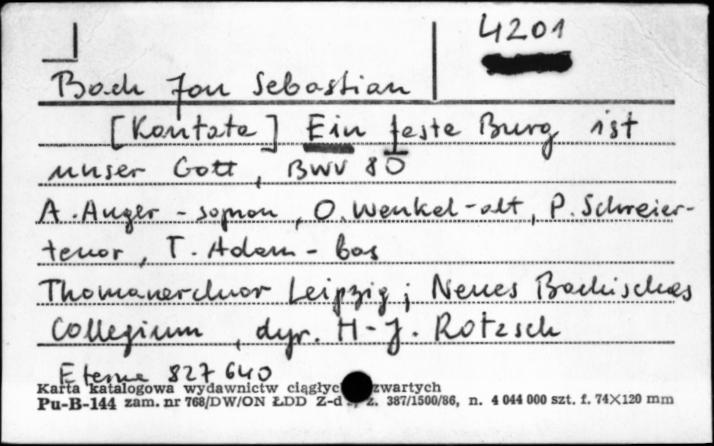 4201
Bach Jan Sebastian
[Kantate] Ein feste Burg ist
unser Gott, BWV 80
A. Auger - sopran, O. Wenkel - alt, P. Schreier -
tenor, T. Adam - bas
Thomanerchor Leipzig; Neues Bachisches
Collegium, dyr. H-J. Rotzsch
Eterna 827 640
Karta katalogowa wydawnictw zwartych
Pu-B-144 zam. nr 768/DW/ON ŁDD Z-d z. 387/1500/86, n. 4 044 000 szt. f. 74×120 mm